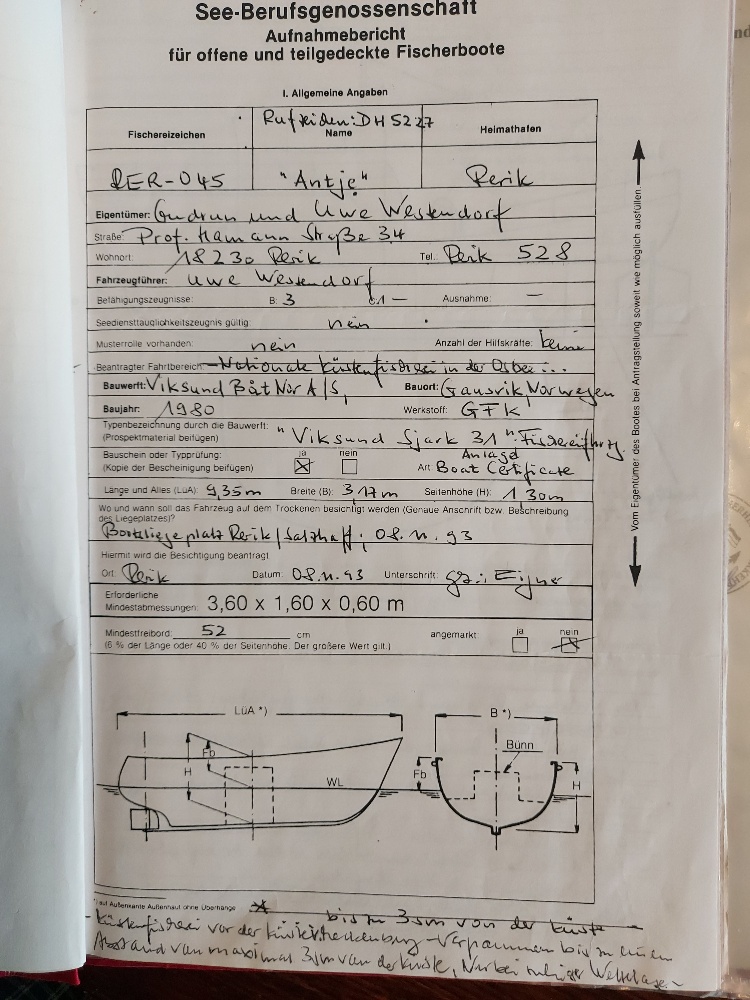 See-Berufsgenossenschaft
Aufnahmebericht
für offene und teilgedeckte Fischerboote
I. Allgemeine Angaben
Rufzeichen: DH 5227
Fischereizeichen Name Heimathafen
RER-045 "Antje" Rerik
Eigentümer: Gudrun und Uwe Westendorf
Straße: Prof. Hamann Straße 34
Wohnort: 18230 Rerik Tel. Rerik 528
Fahrzeugführer: Uwe Westendorf
Befähigungszeugnisse: B: 3 — Ausnahme: —
Seediensttauglichkeitszeugnis gültig: nein
Musterrolle vorhanden: nein Anzahl der Hilfskräfte: keine
Beantragter Fahrtbereich: Nationale Küstenfischerei in der Ostsee
Bauwerft: Viksund Båt Nor A/S, Bauort: Gausvik, Norwegen
Baujahr: 1980 Werkstoff: GFK
Typenbezeichnung durch die Bauwerft: "Viksund Sjark 31"
(Prospektmaterial beifügen)
Bauschein oder Typprüfung: ja nein Anlage
(Kopie der Bescheinigung beifügen) Art: Boat Certificate
Länge und Alles (LüA): 9,35m Breite (B): 3 17m Seitenhöhe (H): 1 30m
Wo und wann soll das Fahrzeug auf dem Trockenen besichtigt werden (Genaue Anschrift bzw. Beschreibung
des Liegeplatzes)?
Bootsliegeplatz Rerik/Salzhaff, 08.11.93
Hiermit wird die Besichtigung beantragt
Ort: Rerik Datum: 08.11.93 Unterschrift: gez.: Eigner
Erforderliche
Mindestabmessungen: 3,60 x 1,60 x 0,60 m
Mindestfreibord: 52 cm angemarkt ja nein
(6 % der Länge oder 40 % der Seitenhöhe. Der größere Wert gilt.)
Vom Eigentümer des Bootes bei Antragstellung soweit wie möglich ausfüllen.
LüA *) B *)
Fb H WL Bünn Fb H
*) auf Außenkante Außenhaut ohne Überhänge
bis zu 3sm von der Küste
- Küstenfischerei vor der Küste Mecklenburg-Vorpommern bis zu einem
Abstand von maximal 3sm von der Küste, Nur bei